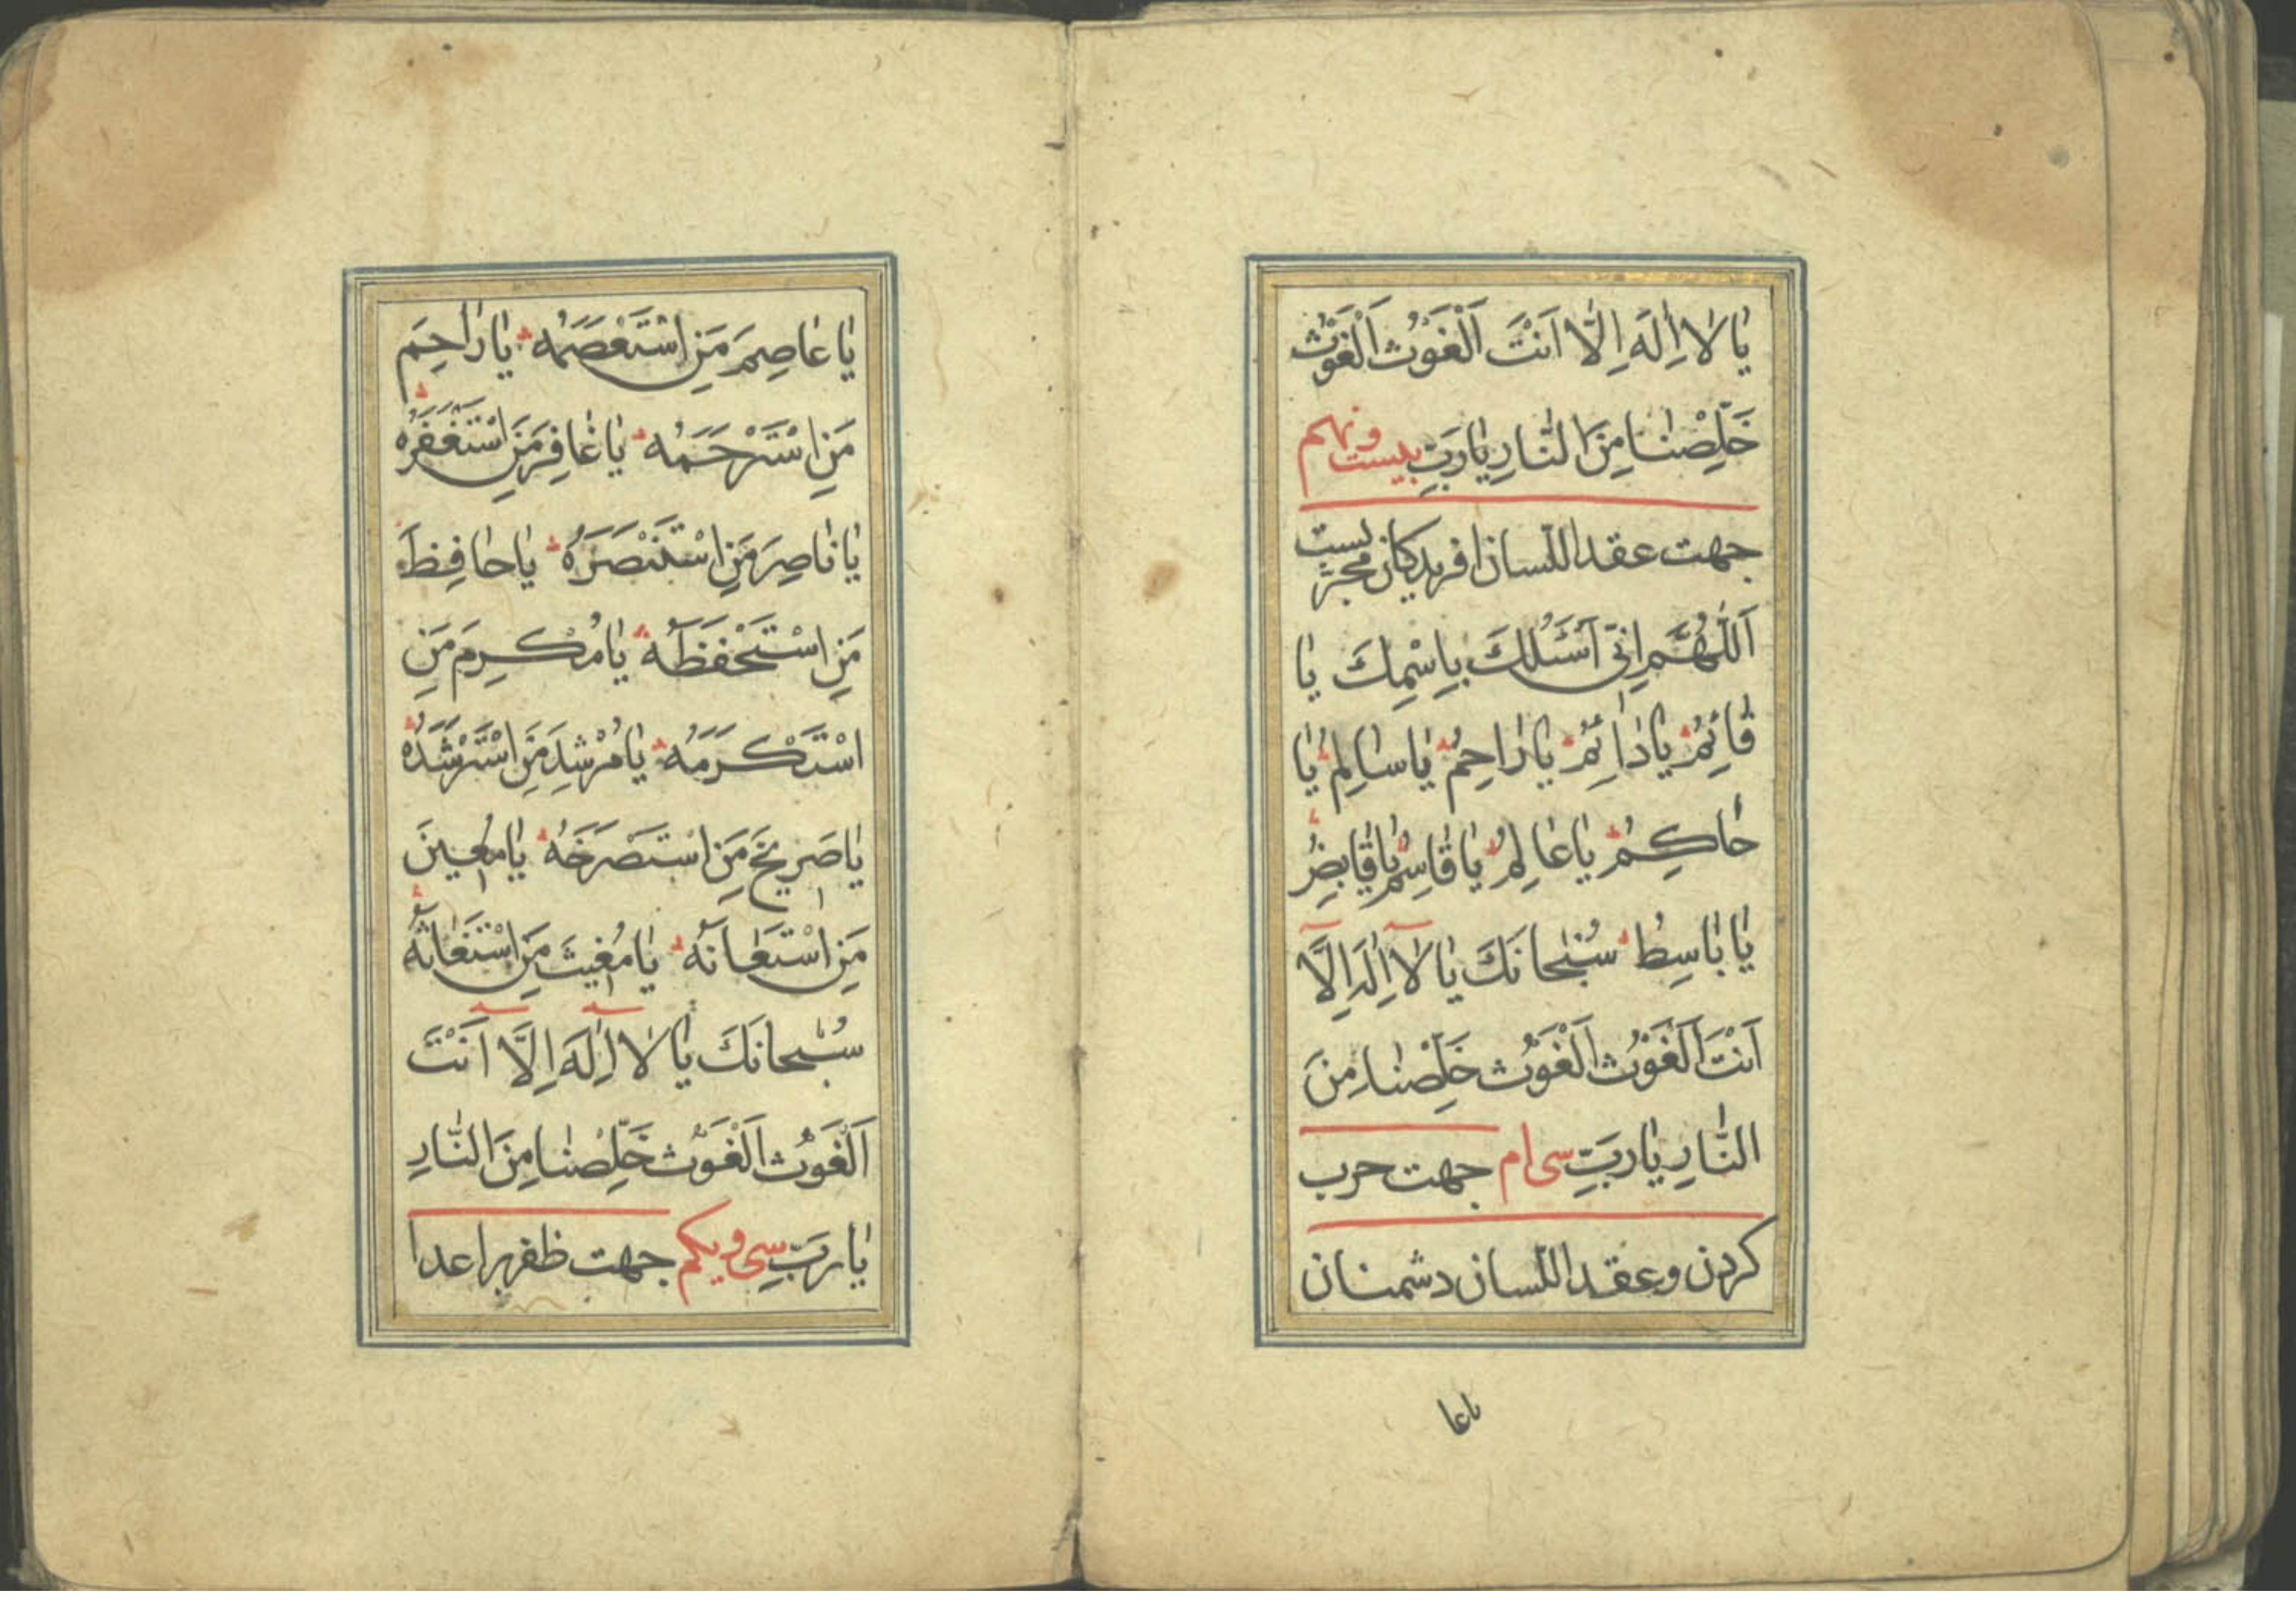 يَا لَا اِلٰهَ اِلَّا اَنْتَ اَلْغَوْثَ اَلْغَوْثَ
خَلِّصْنَا مِنَ النَّارِ يَا رَبِّ بیست و نهم
جهت عقد اللسان افریدکان مجرّبست
اَللّٰهُمَّ اِنِّی اَسْئَلُكَ بِاِسْمِكَ يَا
قَائِمُ يَا دَائِمُ يَا رَاحِمُ يَا سَالِمُ يَا
حَاكِمُ يَا عَالِمُ يَا قَاسِمُ يَا قَابِضُ
يَا بَاسِطُ سُبْحَانَكَ يَا لَا اِلٰهَ اِلَّا
اَنْتَ اَلْغَوْثَ اَلْغَوْثَ خَلِّصْنَا مِنَ
النَّارِ يَا رَبِّ سی ام جهت حرب
کردن و عقد اللسان دشمنان
یا عا
يَا عَاصِمَ مَنِ اسْتَعْصَمَهُ يَا رَاحِمَ
مَنِ اسْتَرْحَمَهُ يَا غَافِرَ مَنِ اسْتَغْفَرَهُ
يَا نَاصِرَ مَنِ اسْتَنْصَرَهُ يَا حَافِظَ
مَنِ اسْتَحْفَظَهُ يَا مُكْرِمَ مَنِ
اسْتَكْرَمَهُ يَا مُرْشِدَ مَنِ اسْتَرْشَدَهُ
يَا صَرِيخَ مَنِ اسْتَصْرَخَهُ يَا مُعِينَ
مَنِ اسْتَعَانَهُ يَا مُغِيثَ مَنِ اسْتَغَاثَهُ
سُبْحَانَكَ يَا لَا اِلٰهَ اِلَّا اَنْتَ
اَلْغَوْثَ اَلْغَوْثَ خَلِّصْنَا مِنَ النَّارِ
يَا رَبِّ سی و یکم جهت ظفر بر اعدا